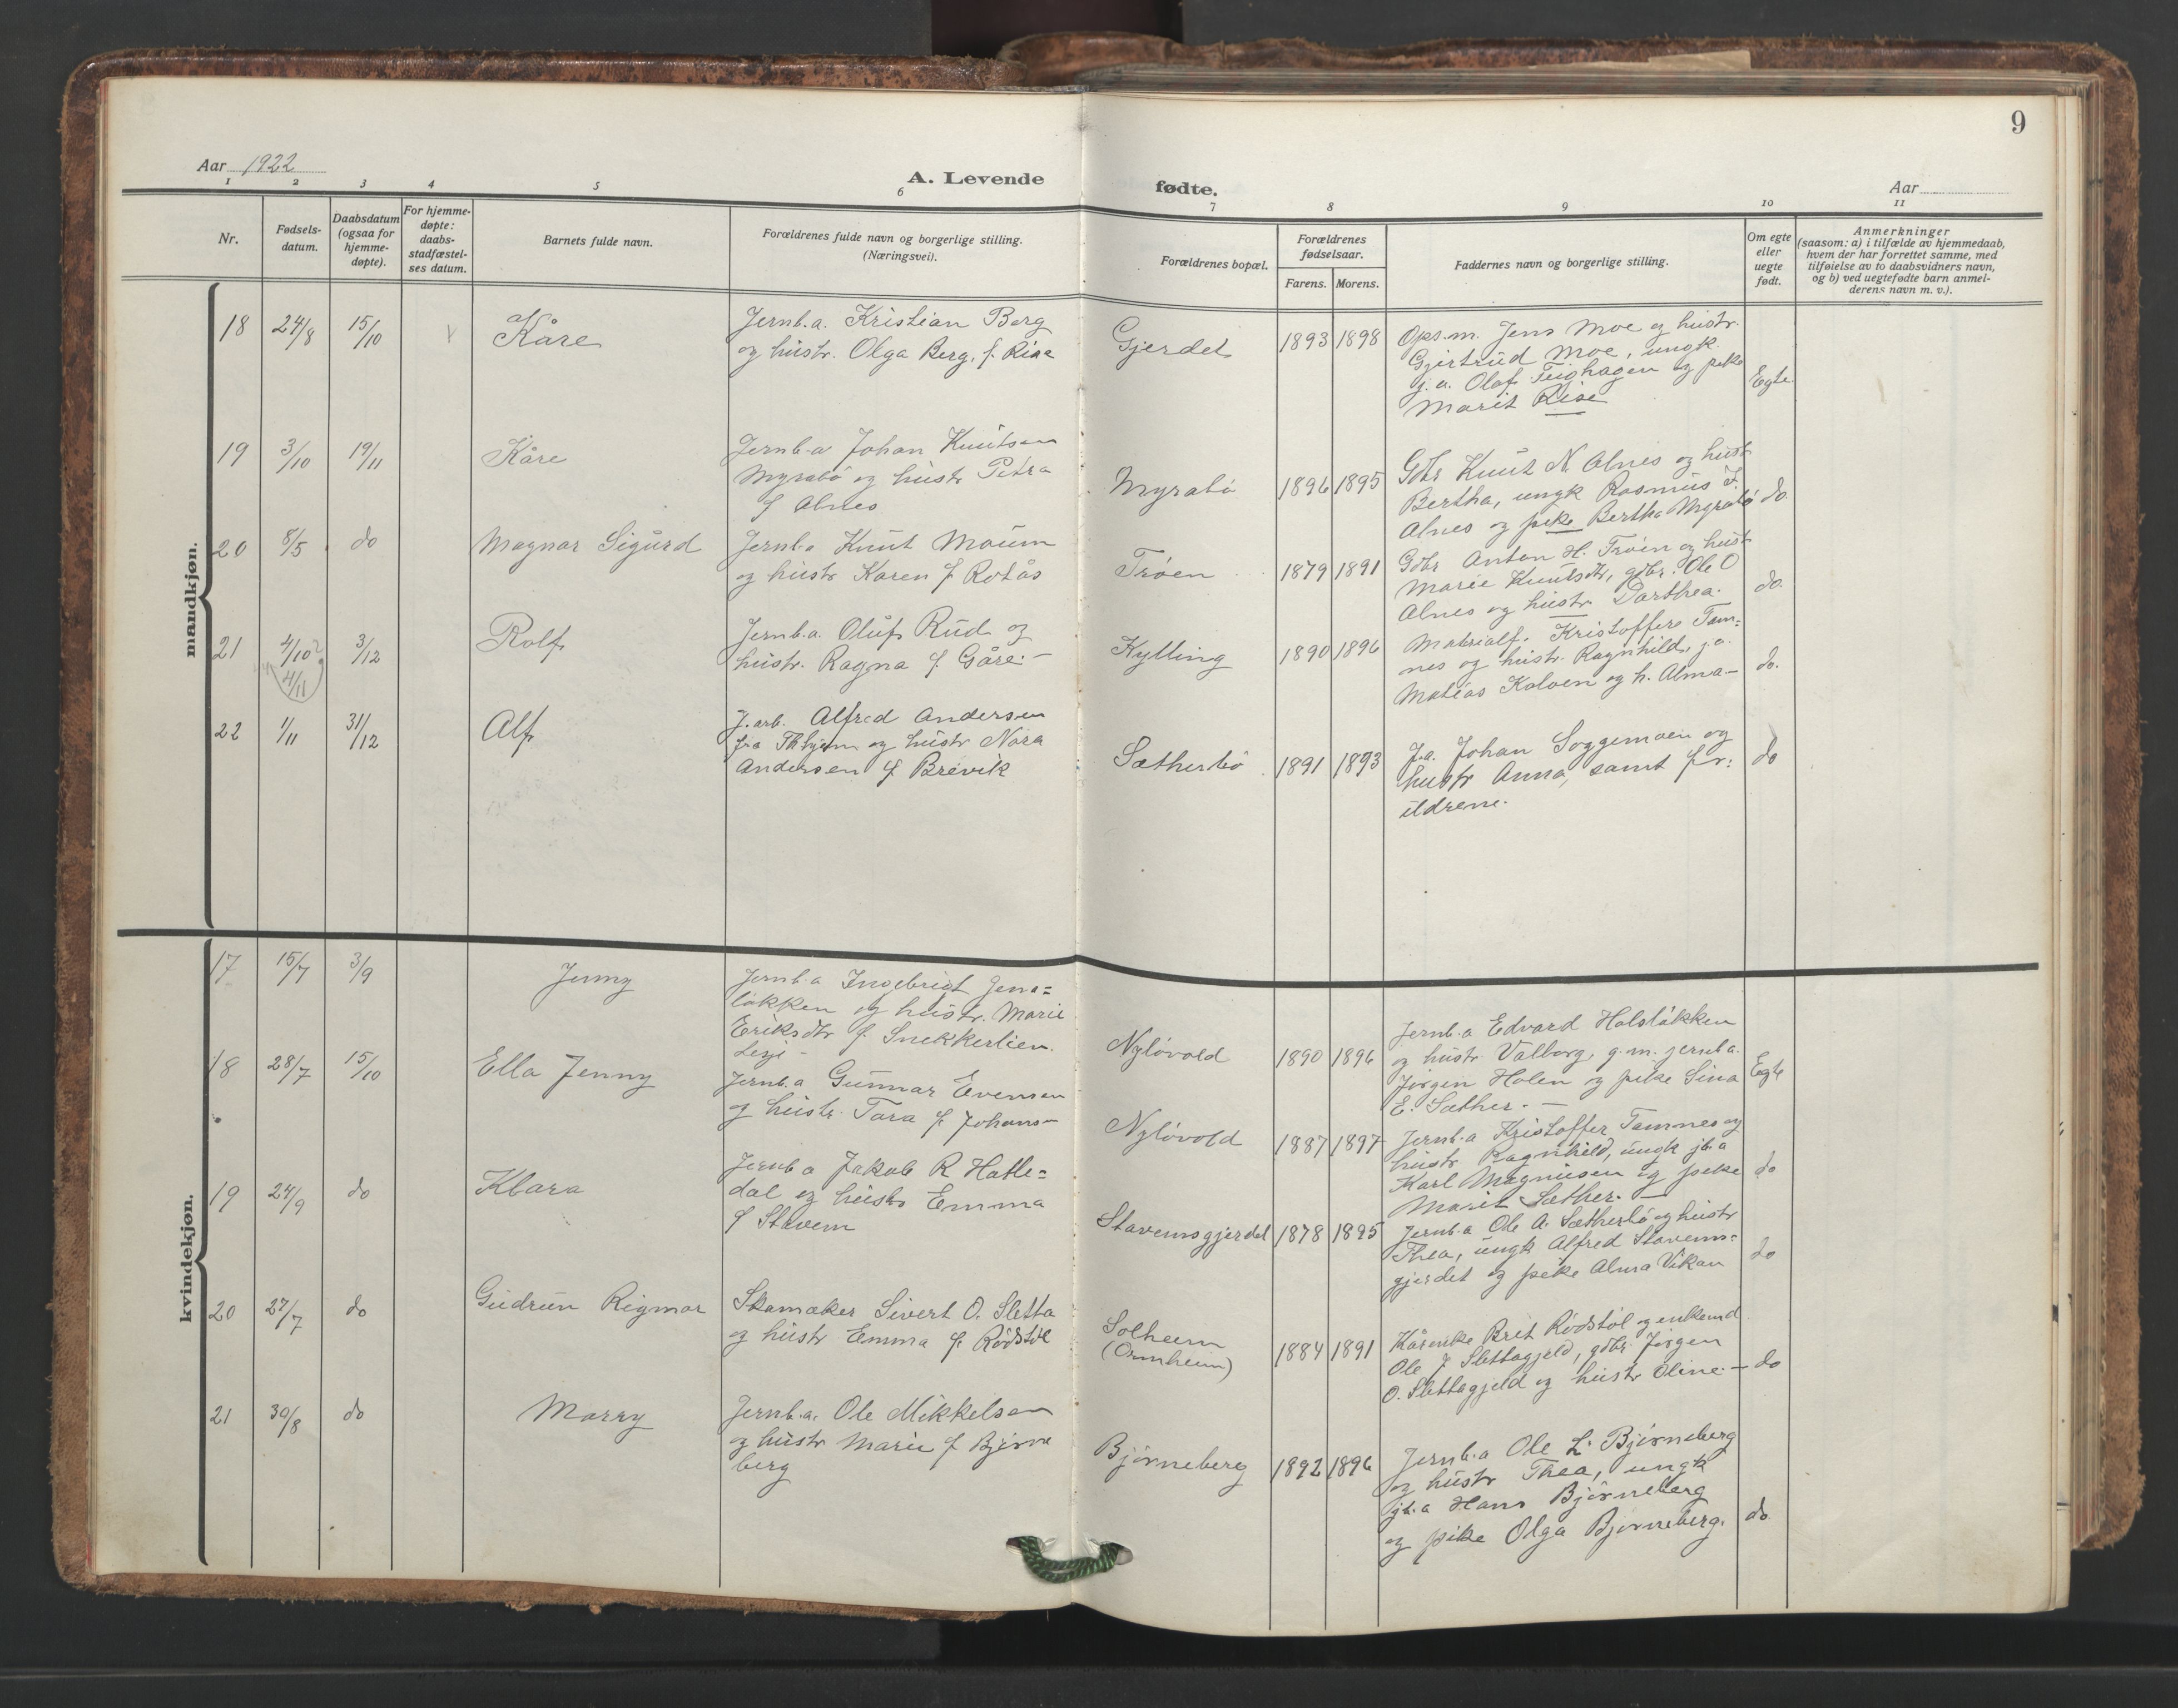 9
Aar 1922
A. Levende fødte.
Aar
1 2 3 4 5 6 7 8 9 10 11
Nr.
Fødsels-
datum.
Daabsdatum
(ogsaa for
hjemme-
døpte).
For hjemme-
døpte:
daabs-
stadfæstel-
ses datum.
Barnets fulde navn.
Forældrenes fulde navn og borgerlige stilling.
(Næringsvei).
Forældrenes bopæl.
Forældrenes
fødselsaar.
Farens. Morens.
Faddernes navn og borgerlige stilling.
Om egte
eller
uegte
født.
Anmerkninger
(saasom: a) i tilfælde av hjemmedaab,
hvem der har forrettet samme, med
tilføielse av to daabsvidners navn,
og b) ved uegtefødte barn anmel-
derens navn m. v.).
mandkjøn.
18 24/8 15/10 Kåre
Jernb.a. Kristian Berg
og hustr. Olga Berg, f. Rise
Gjerdet 1893 1898
Ops.m. Jens Moe og hustr.
Gjertrud Moe, ungk.
j.a. Olaf Teighagen og pike
Marit Rise
Egte.
19 3/10 19/11 Kåre
Jernb.a Johan Knutsen
Myrabö og hustr Petra
f Alnes
Myrabö 1896 1895
Gbr Knut N. Alnes og hustr
Bertha, ungk Rasmus J.
Alnes og pike Bertha Myrabö
do.
20 8/5 do Magnar Sigurd
Jernb.a Knut Moum
og hustr Karen f Rotås
Tröen 1879 1891
Gbr Anton H. Tröen og hustr
Marie Knutsdtr, gdbr. Ole O
Alnes og hustr Dorthea.
do.
21 4/10? 3/12 Rolf
4/11
Jernb.a. Oluf Rud og
hustr. Ragna f Gåre. -
Kylling 1890 1896
Materialf. Kristoffer Tom=
nes og hustr. Ragnhild, j.a.
Matias Kolven og h. Alma. -
do.
22 1/11 31/12 Alf
J.arb. Alfred Andersen
fra Thhjem og hustr Nora
Andersen f Brevik
Sætherbö 1891 1893
J.a. Johan Soggemoen og
hustr Anna, samt for:
eldrene.
do
kvindekjøn.
17 15/7 3/9 Jenny
Jernb.a Ingebrigt Jens=
lökken og hustr. Marie
Eriksdtr f. Snekkerlien.
Lesje -
Nylövold 1890 1896
Jernb.a Edvard Holslökken
og hustr Valborg, g.m. jernb.a.
Jörgen Holen og pike Sina
E. Sæther. -
Egte
18 28/7 15/10 Ella Jenny
Jernb.a Gunnar Evensen
og hustr. Tora f. Johansen
Nylövold 1887 1897
Jernb.a Kristoffer Tomnes og
hustr Ragnhild, ungk jb.a
Karl Magnusen og pike
Marit Sæther. -
do
19 24/9 do Klara
Jernb a Jakob R Hatle=
dal og hustr Emma
f Stavem
Stavemsgjerdet 1878 1895
Jernb.a Ole A. Sætherbö og hustr
Thea, ungk Alfred Stavems=
gjerdet og pike Alma Vikan
do
20 27/7 do Gudrun Rigmor
Skomaker Sivert O. Sletta
og hustr Emma f. Rödstöl
Solheim
(Ormheim) 1884 1891
Kårenke Brit Rödstöl og enkemd
Ole J Slettagjeld, gdbr. Jörgen
O. Slettagjeld og hustr Oline. -
do
21 30/8 do Marry
Jernb.a. Ole Mikkelsen
og hustr Marie f Björne
berg
Björneberg 1892 1896
Jernb.a Ole L. Björneberg
og hustr Thea, ungk
jb.a Hans Björneberg
og pike Olga Björneberg.
do